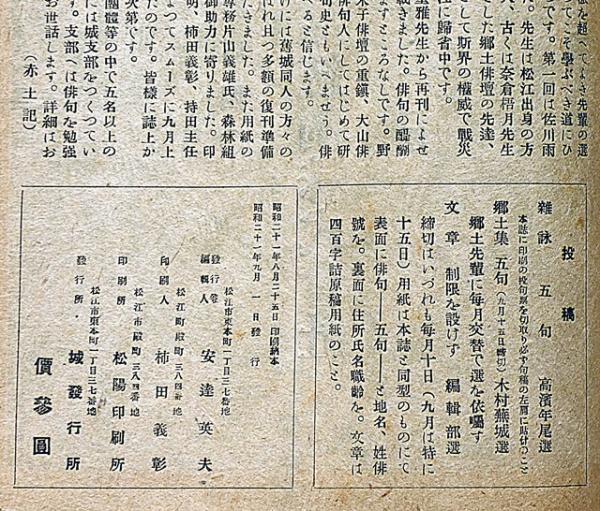 を超へてよき先輩の選
つてこそ學ぶべき道にひ
です。第一回は佐川雨
。先生は松江出身の方
人、古くは奈倉梧月先生
した郷土俳壇の先達、
として斯界の權威で戰災
在に歸省中です。
聖雅先生から再刊によせ
戴きました。俳句の醍醐
ますところなしです。野
米子俳壇の重鎭、大山俳
俳句人にしてはじめて研
句史ともいへませう。俳
ると信じます。
けには舊城同人の方々の、
ばれ且つ多額の復刊準備
だきました。また用紙の
專務片山義雄氏、森林組
御助力に寄りました。印
明、柿田義彰、持田主任
よつてスムーズに九月上
たのです。皆樣に誌上か
次第です。
には城支部をつくつてい
團體等の中で五名以上の
す。支部へは俳句を勉强
お世話します。詳細はお
（赤土記）
投稿
雜詠 五句 高濱年尾選
本誌に印刷の投句票を切取り必ず句稿の左肩に貼付のこと
郷土集 五句（九月十五日締切）木村蕪城選
郷土先輩に毎月交替で選を依囑す
文章 制限を設けず 編輯部選
締切はいづれも毎月十日（九月は特に
十五日）用紙は本誌と同型のものにて
表面に俳句――五句――と地名、姓俳
號を。裏面に住所氏名職齡を。文章は
四百字詰原稿用紙のこと。
昭和二十一年八月二十五日印刷納本
昭和二十一年九月一日發行
松江市東本町一丁目三七番地
發行者
編輯人 安達英夫
松江市殿町三八四番地
印刷人 柿田義彰
松江市殿町三八四番地
印刷所 松陽印刷所
松江市東本町一丁目三七番地
發行所 城發行所
價參圓